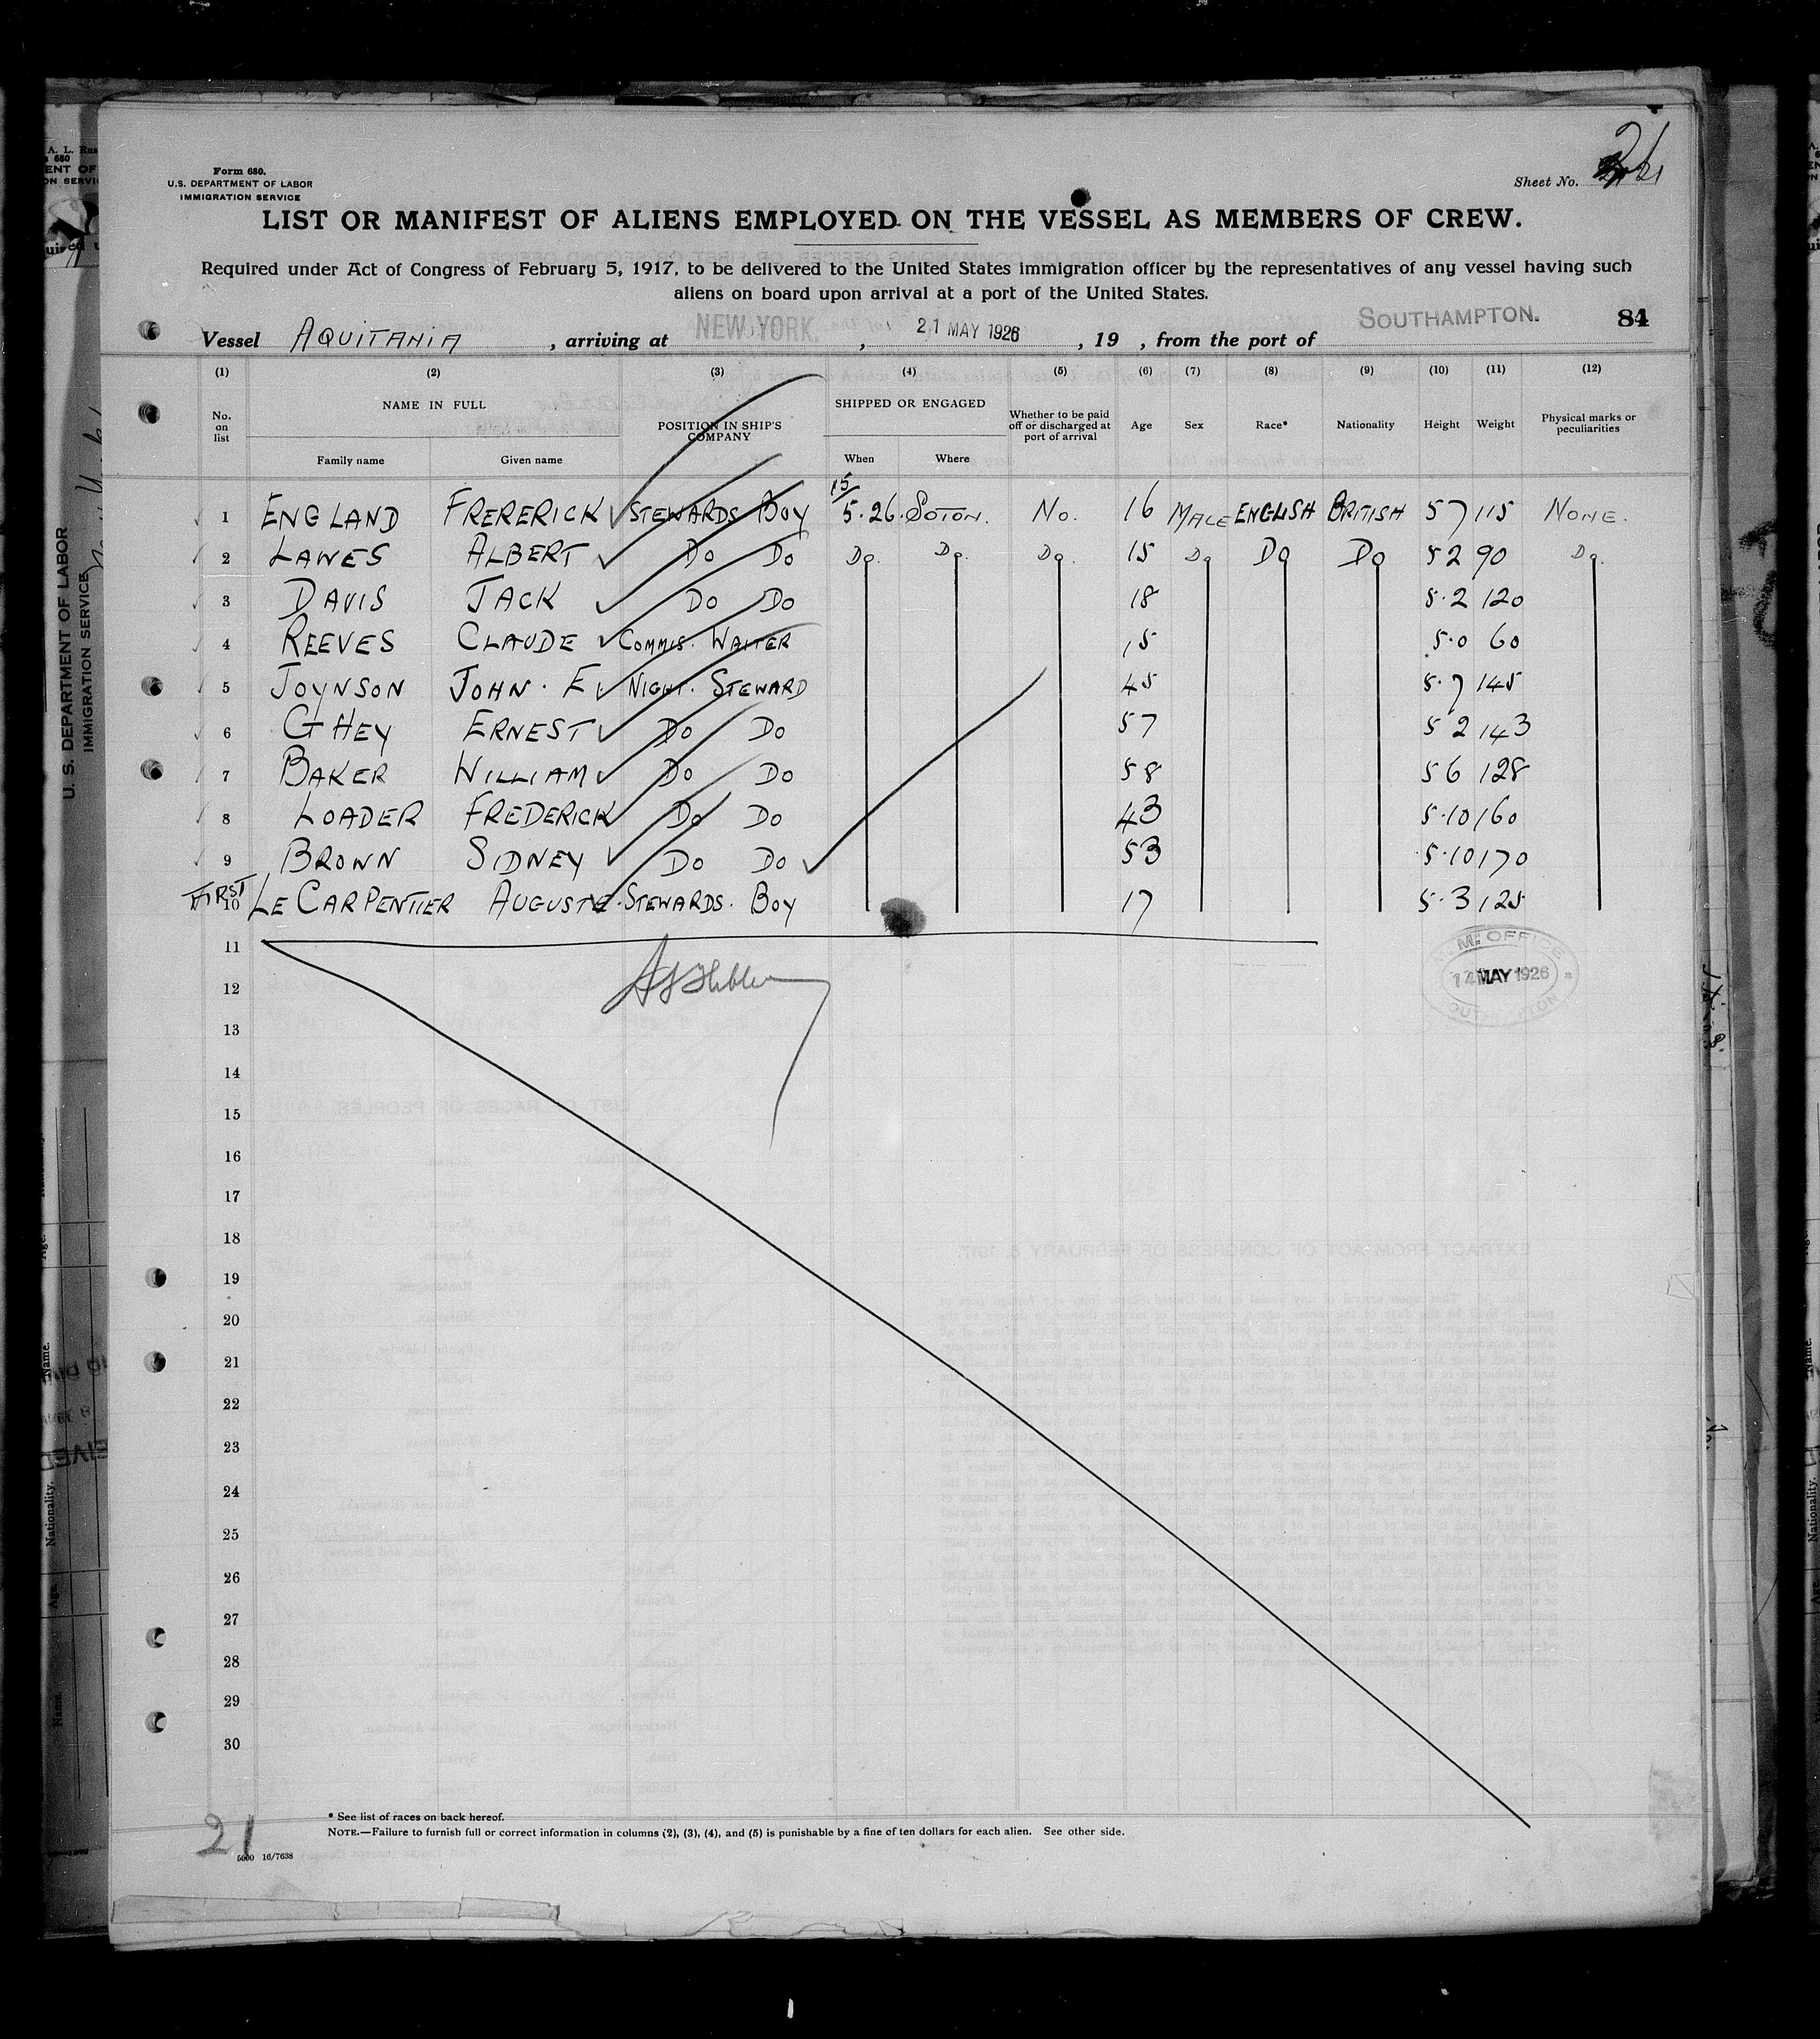 Form 680.
U.S. DEPARTMENT OF LABOR
IMMIGRATION SERVICE
Sheet No.
LIST OR MANIFEST OF ALIENS EMPLOYED ON THE VESSEL AS MEMBERS OF CREW.
Required under Act of Congress of February 5, 1917, to be delivered to the United States immigration officer by the representatives of any vessel having such
aliens on board upon arrival at a port of the United States.
Vessel AQUITANIA, arriving at NEW YORK., 21 MAY 1926, 19 , from the port of SOUTHAMPTON. 84
(1) (2) (3) (4) (5) (6) (7) (8) (9) (10) (11) (12)
No. on list NAME IN FULL Family name Given name POSITION IN SHIP'S COMPANY SHIPPED OR ENGAGED When Where Whether to be paid off or discharged at port of arrival Age Sex Race* Nationality Height Weight Physical marks or peculiarities
1 ENGLAND FRERERICK STEWARDS BOY 15/5.26. SOTON. NO. 16 MALE ENGLISH BRITISH 5 7 115 NONE.
2 LAWES ALBERT DO DO DO. DO. DO. 15 DO DO DO 5 2 90 DO.
3 DAVIS JACK DO DO 18 5.2 120
4 REEVES CLAUDE COMMIS. WAITER 15 5.0 60
5 JOYNSON JOHN. E NIGHT. STEWARD 45 5.7 145
6 GHEY ERNEST DO DO 57 5 2 143
7 BAKER WILLIAM DO DO 58 5 6 128
8 LOADER FREDERICK DO DO 43 5.10 160
9 BROWN SIDNEY DO DO 53 5.10 170
FIRST 10 LE CARPENTIER AUGUSTE. STEWARDS. BOY 17 5.3 125
11
12
13
14
15
16
17
18
19
20
21
22
23
24
25
26
27
28
29
30
OFFICE
14 MAY 1926
* See list of races on back hereof.
NOTE.—Failure to furnish full or correct information in columns (2), (3), (4), and (5) is punishable by a fine of ten dollars for each alien. See other side.
21
5000 16/7638
U. S. DEPARTMENT OF LABOR
IMMIGRATION SERVICE